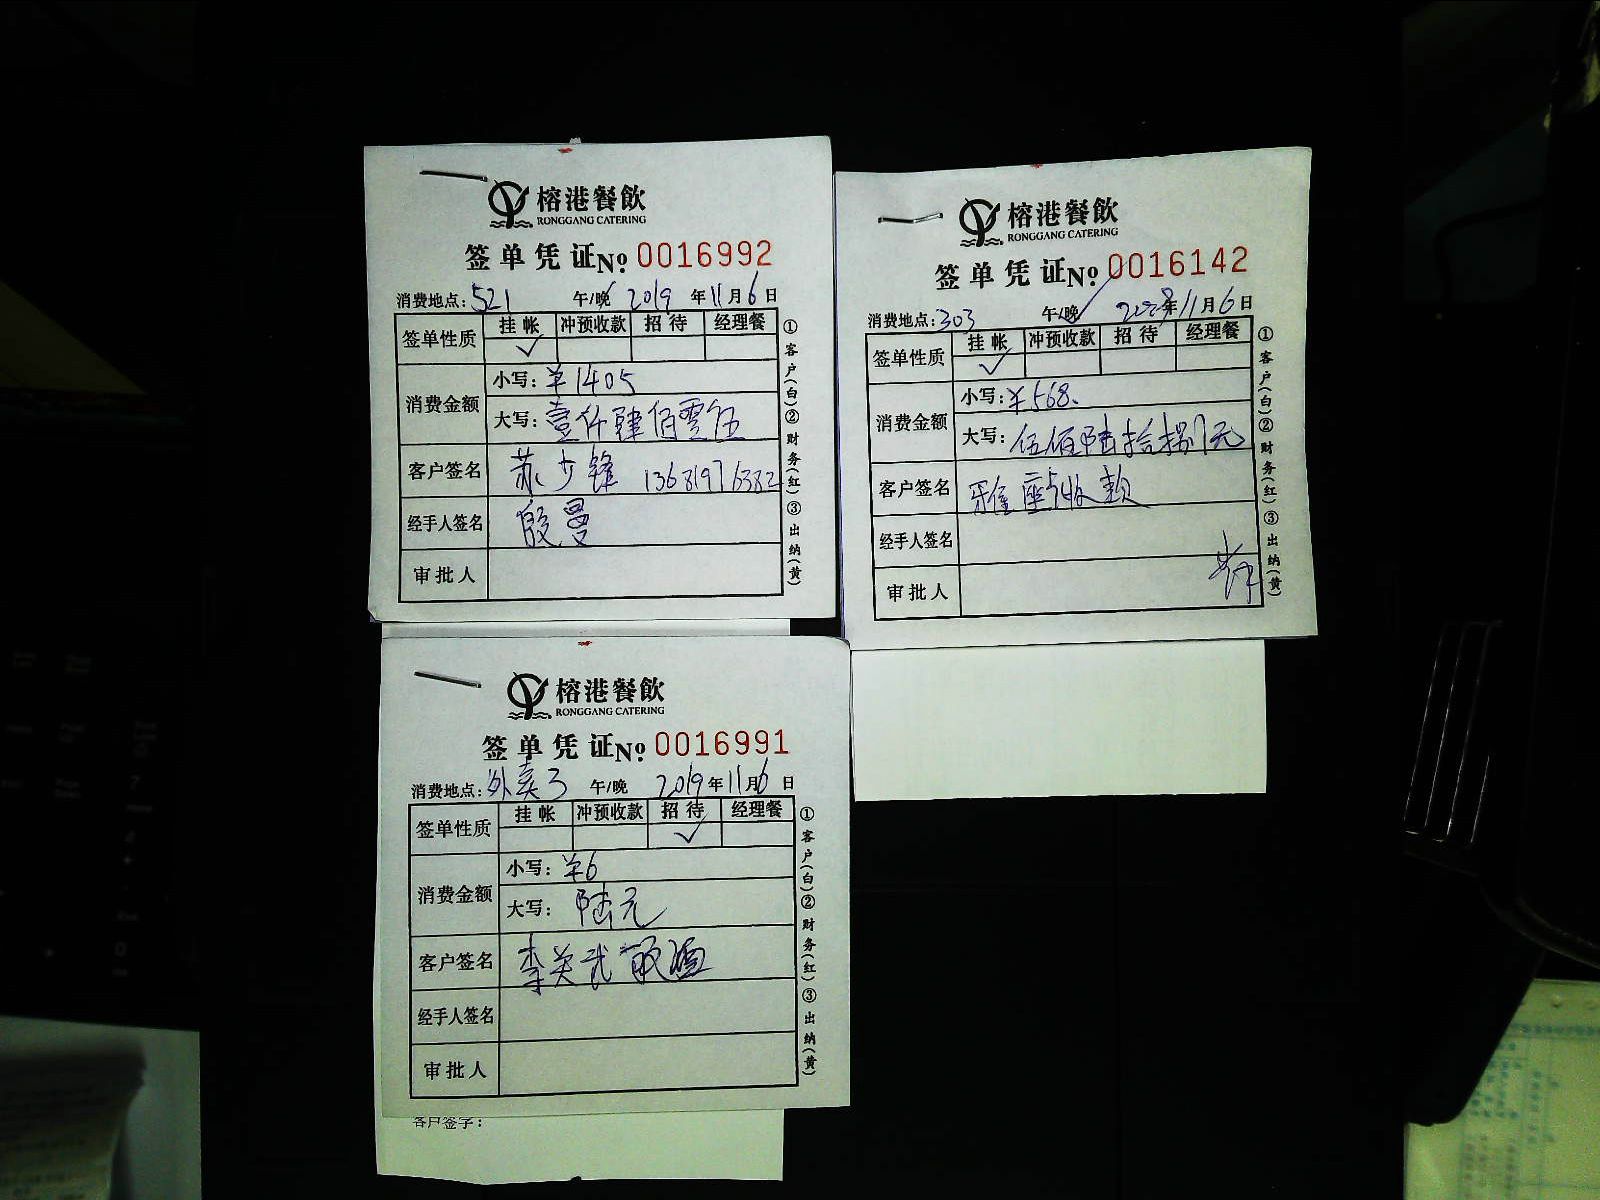 榕港餐飲
RONGGANG CATERING
签单凭证No 0016992
消费地点:521 午/晚 2019年11月6日
签单性质 挂帐 冲预收款 招待 经理餐
✓
消费金额 小写:¥1405
大写:壹仟肆佰零伍
客户签名 苏少锋 13681976382
经手人签名 殷曼
审批人
①客户(白)②财务(红)③出纳(黄)
榕港餐飲
RONGGANG CATERING
签单凭证No 0016142
消费地点:303 午/晚 年11月6日
签单性质 挂帐 冲预收款 招待 经理餐
✓
消费金额 小写:¥568.
大写:伍佰陆拾捌元
客户签名 雅座
经手人签名
审批人
①客户(白)②财务(红)③出纳(黄)
榕港餐飲
RONGGANG CATERING
签单凭证No 0016991
消费地点:外卖3 午/晚 2019年11月6日
签单性质 挂帐 冲预收款 招待 经理餐
✓
消费金额 小写:¥6
大写:陆元
客户签名 李关武
经手人签名
审批人
①客户(白)②财务(红)③出纳(黄)
客户签字: